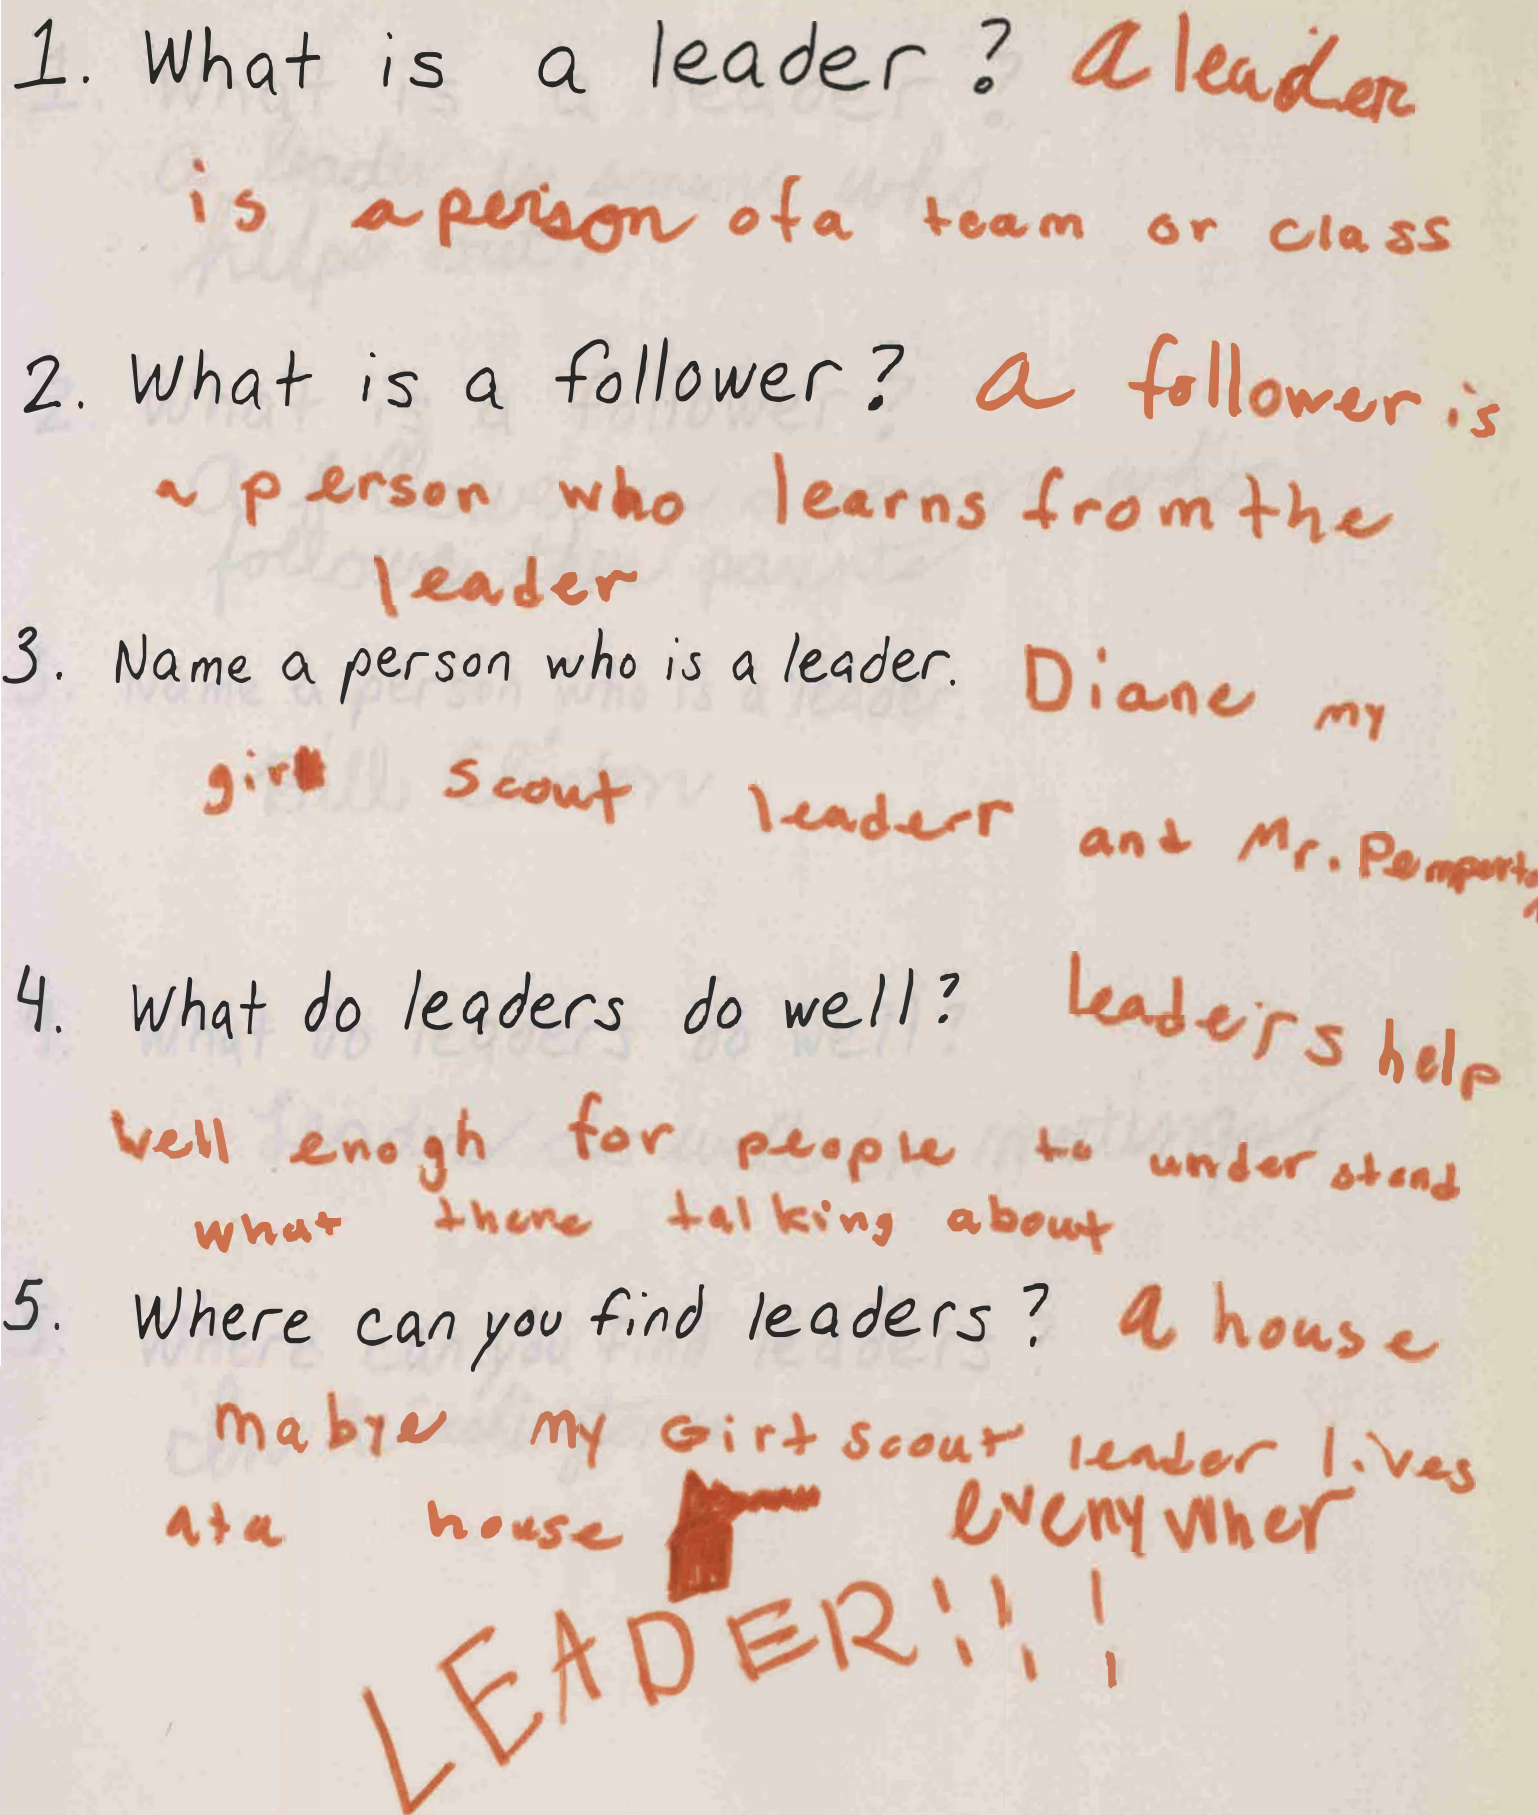 1. What is a leader? A leader
is a person of a team or class
2. What is a follower? A follower is
a person who learns from the
leader
3. Name a person who is a leader. Diane my
girl scout leaderr and Mr.
4. What do leaders do well? Leaders help
well enogh for people to understand
what there talking about
5. Where can you find leaders? A house
mabye my Girl scout leader lives
at a house everywher
LEADER!!!